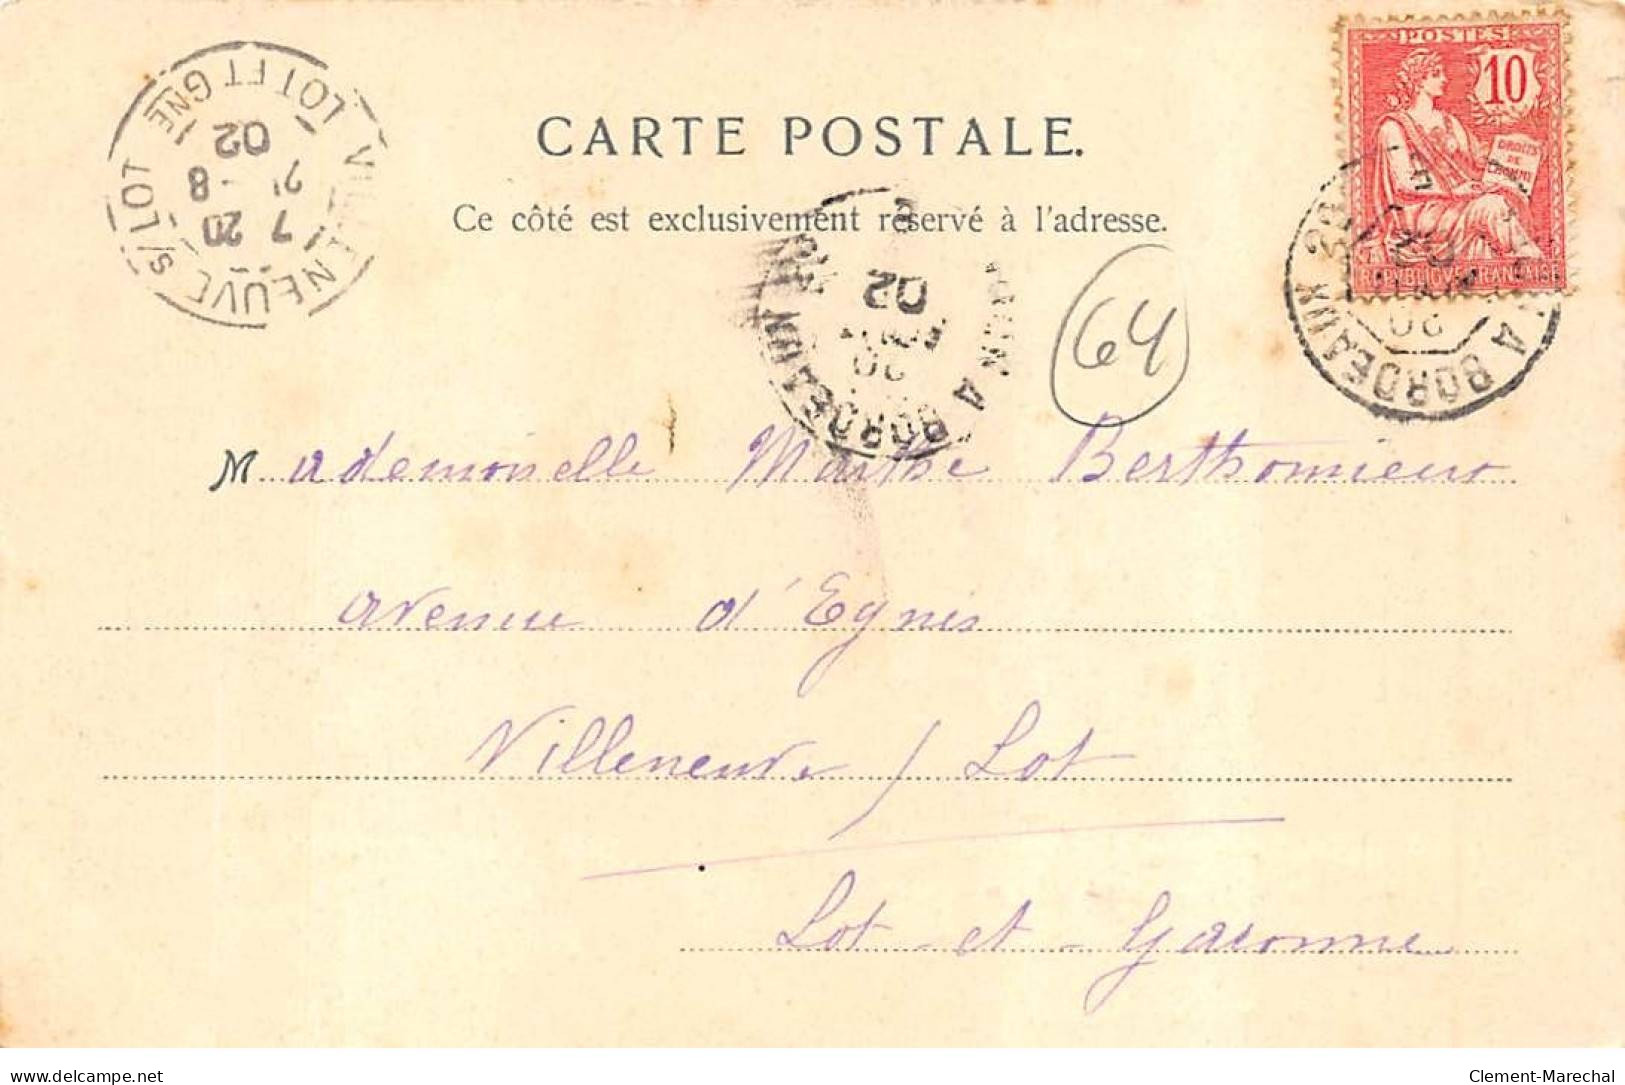 POSTES
10
DROITS
DE
L'HOMME
REPUBLIQUE FRANÇAISE
VILLENEUVE S/LOT
LOT ET GNE
7 20
21 - 8
02
CARTE POSTALE.
Ce côté est exclusivement réservé à l'adresse.
A BORDEAUX
20
AOUT
02
A BORDEAUX
20
AOUT
02
64
Mademoiselle Marthe Berthomieux
avenue d'Eynis
Villeneuve / Lot
Lot - et - Garonne
delcampe.net
Clement-Marechal